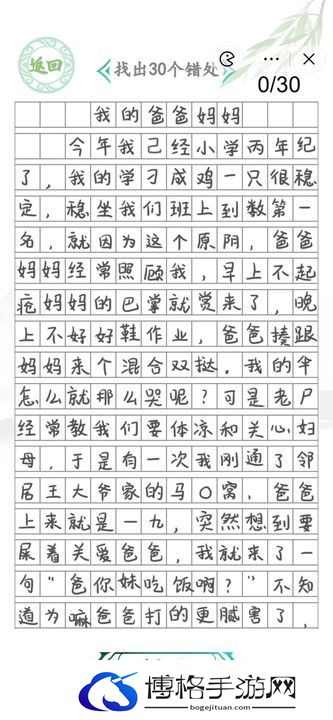 返回
找出30个错处
0/30
我的爸爸妈妈
今年我己经小学丙年纪
了，我的学刁成鸡一只很稳
定，稳坐我们班上到数第一
名，就因为这个原阴，爸爸
妈妈经常照顾我，早上不起
疤妈妈的巴掌就觉来了，晚
上不好好鞋作业，爸爸揍跟
妈妈来个混合双挞。我的伞
怎么就那么哭呢？可是老尸
经常教我们要体凉和关心妇
母，于是有一次我刚通了邻
居王大爷家的马〇窝，爸爸
上来就是一九，突然想到要
尿着关爱爸爸，我就来了一
句“爸你妹吃饭啊？”不知
道为嘛爸爸打的更腻害了，
博格手游网
bogejituan.com